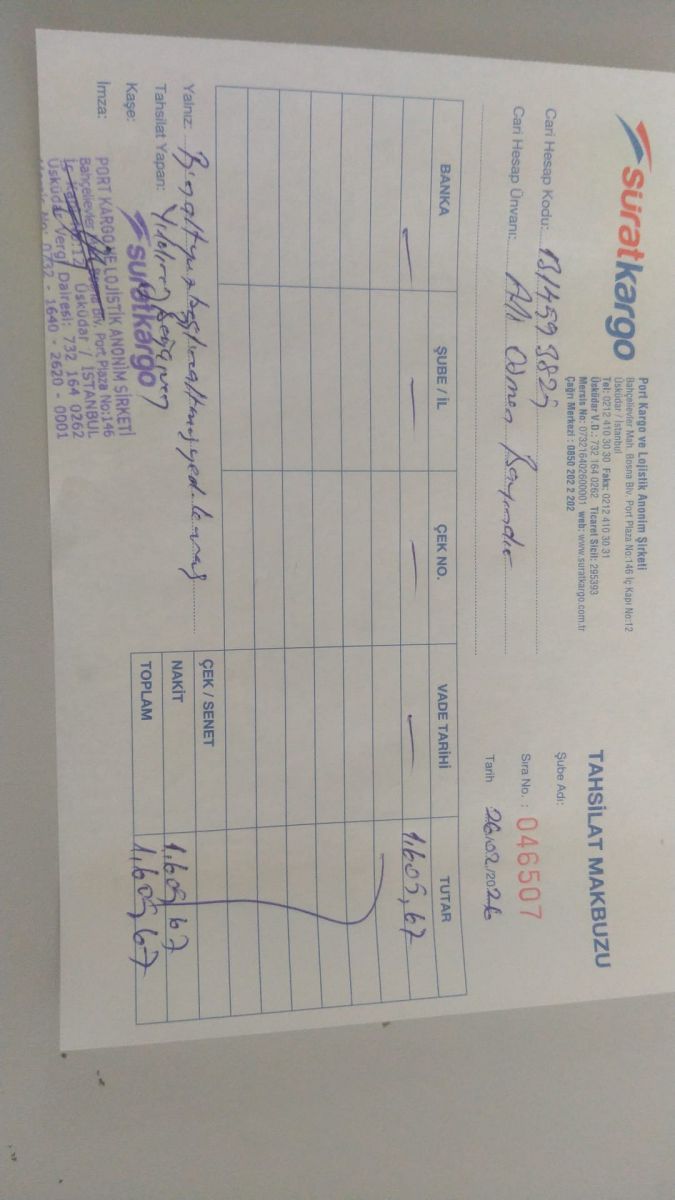 süratkargo
Port Kargo ve Lojistik Anonim Şirketi
Bahçelievler Mah. Bosna Blv. Port Plaza No:146 İç Kapı No:12
Üsküdar / İstanbul
Tel: 0212 410 30 30 Faks: 0212 410 30 31
Üsküdar V.D.: 732 164 0262 Ticaret Sicil: 295393
Mersis No: 073216402600001 web: www.suratkargo.com.tr
Çağrı Merkezi : 0850 202 2 202
TAHSİLAT MAKBUZU
Şube Adı:
Sıra No. : 046507
Tarih 26/02/2026
Cari Hesap Kodu:
Cari Hesap Ünvanı: Ali
BANKA ŞUBE / İL ÇEK NO. VADE TARİHİ TUTAR
— — — — 1,605,67
ÇEK / SENET
NAKİT 1,605,67
TOPLAM 1,605,67
Yalnız:
Tahsilat Yapan: Yıldıray
Kaşe:
İmza:
süratkargo
PORT KARGO VE LOJİSTİK ANONİM ŞİRKETİ
Bahçelievler Bosna Blv. Port Plaza No:146
Üsküdar / İSTANBUL
Üsküdar Vergi Dairesi: 732 164 0262
No: 0732 - 1640 - 2620 - 0001